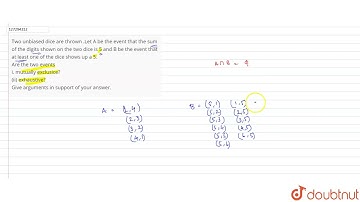 127294312
Two unbiased dice are thrown .Let A be the event that the sum
of the digits shown on the two dice is 5 and B be the event that
at least one of the dice shows up a 5.
Are the two events
i. mutually exclusive?
(ii) exhaustive?
Give arguments in support of your answer.
A ∩ B = φ
A = (1,4) B = (5,1) (1,5)
(2,3) (5,2) (2,5)
(3,2) (5,3) (3,5)
(4,1) (5,4) (4,5)
(5,5) (6,5)
(5,6)
doubtnut